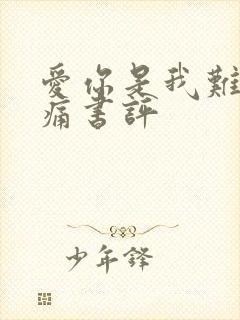 愛你是我難
痛書評
少年鋒